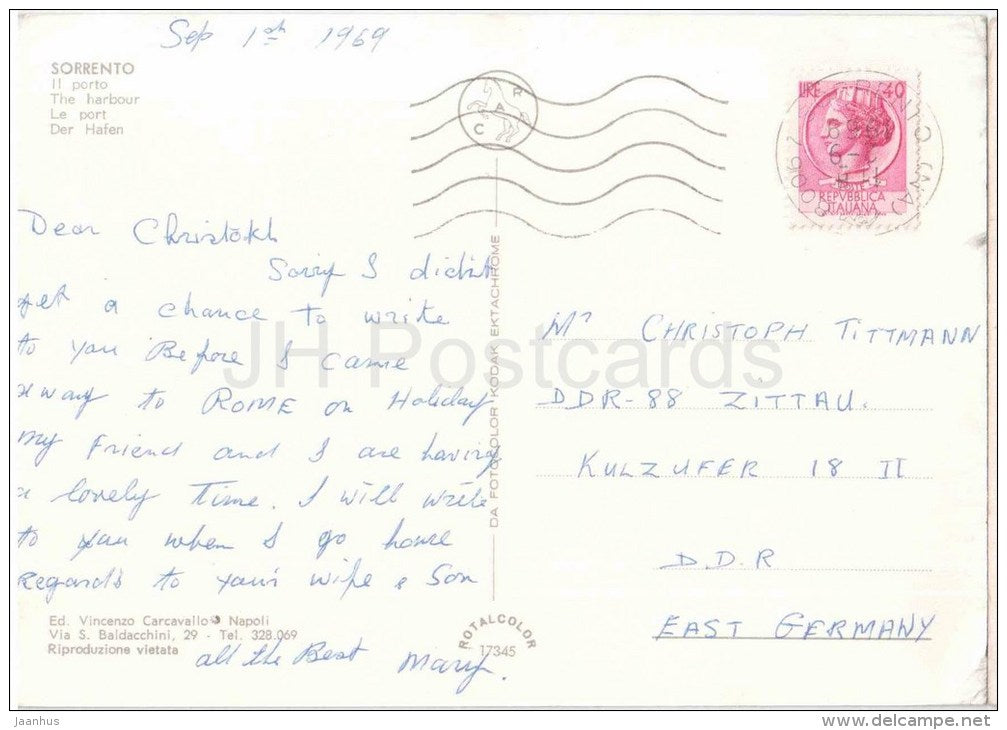 Sep 1st 1969
SORRENTO
Il porto
The harbour
Le port
Der Hafen
C A R
LIRE 40
POSTE
REPVBBLICA
ITALIANA
Dear Christokh
Sorry I didn't
get a chance to write
to you Before I came
away to ROME on Holiday
my Friend and I are having
a lovely Time. I will write
to you when I go home
Regards to your wife & Son
all the Best Mary.
DA FOTOCOLOR KODAK EKTACHROME
Mr CHRISTOPH TITTMANN
DDR-88 ZITTAU.
KULZUFER 18 II
D.D.R
EAST GERMANY
Ed. Vincenzo Carcavallo Napoli
Via S. Baldacchini, 29 - Tel. 328.069
Riproduzione vietata
ROTALCOLOR
17345
JH Postcards
jaanhus
www.delcampe.net